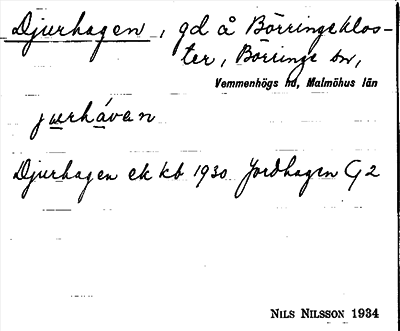 Djurhagen, gd å Börringeklos-
ter, Börringe sn,
Vemmenhögs hd, Malmöhus län
jurháven
Djurhagen ek kb 1930 Jordhagen G2
NILS NILSSON 1934